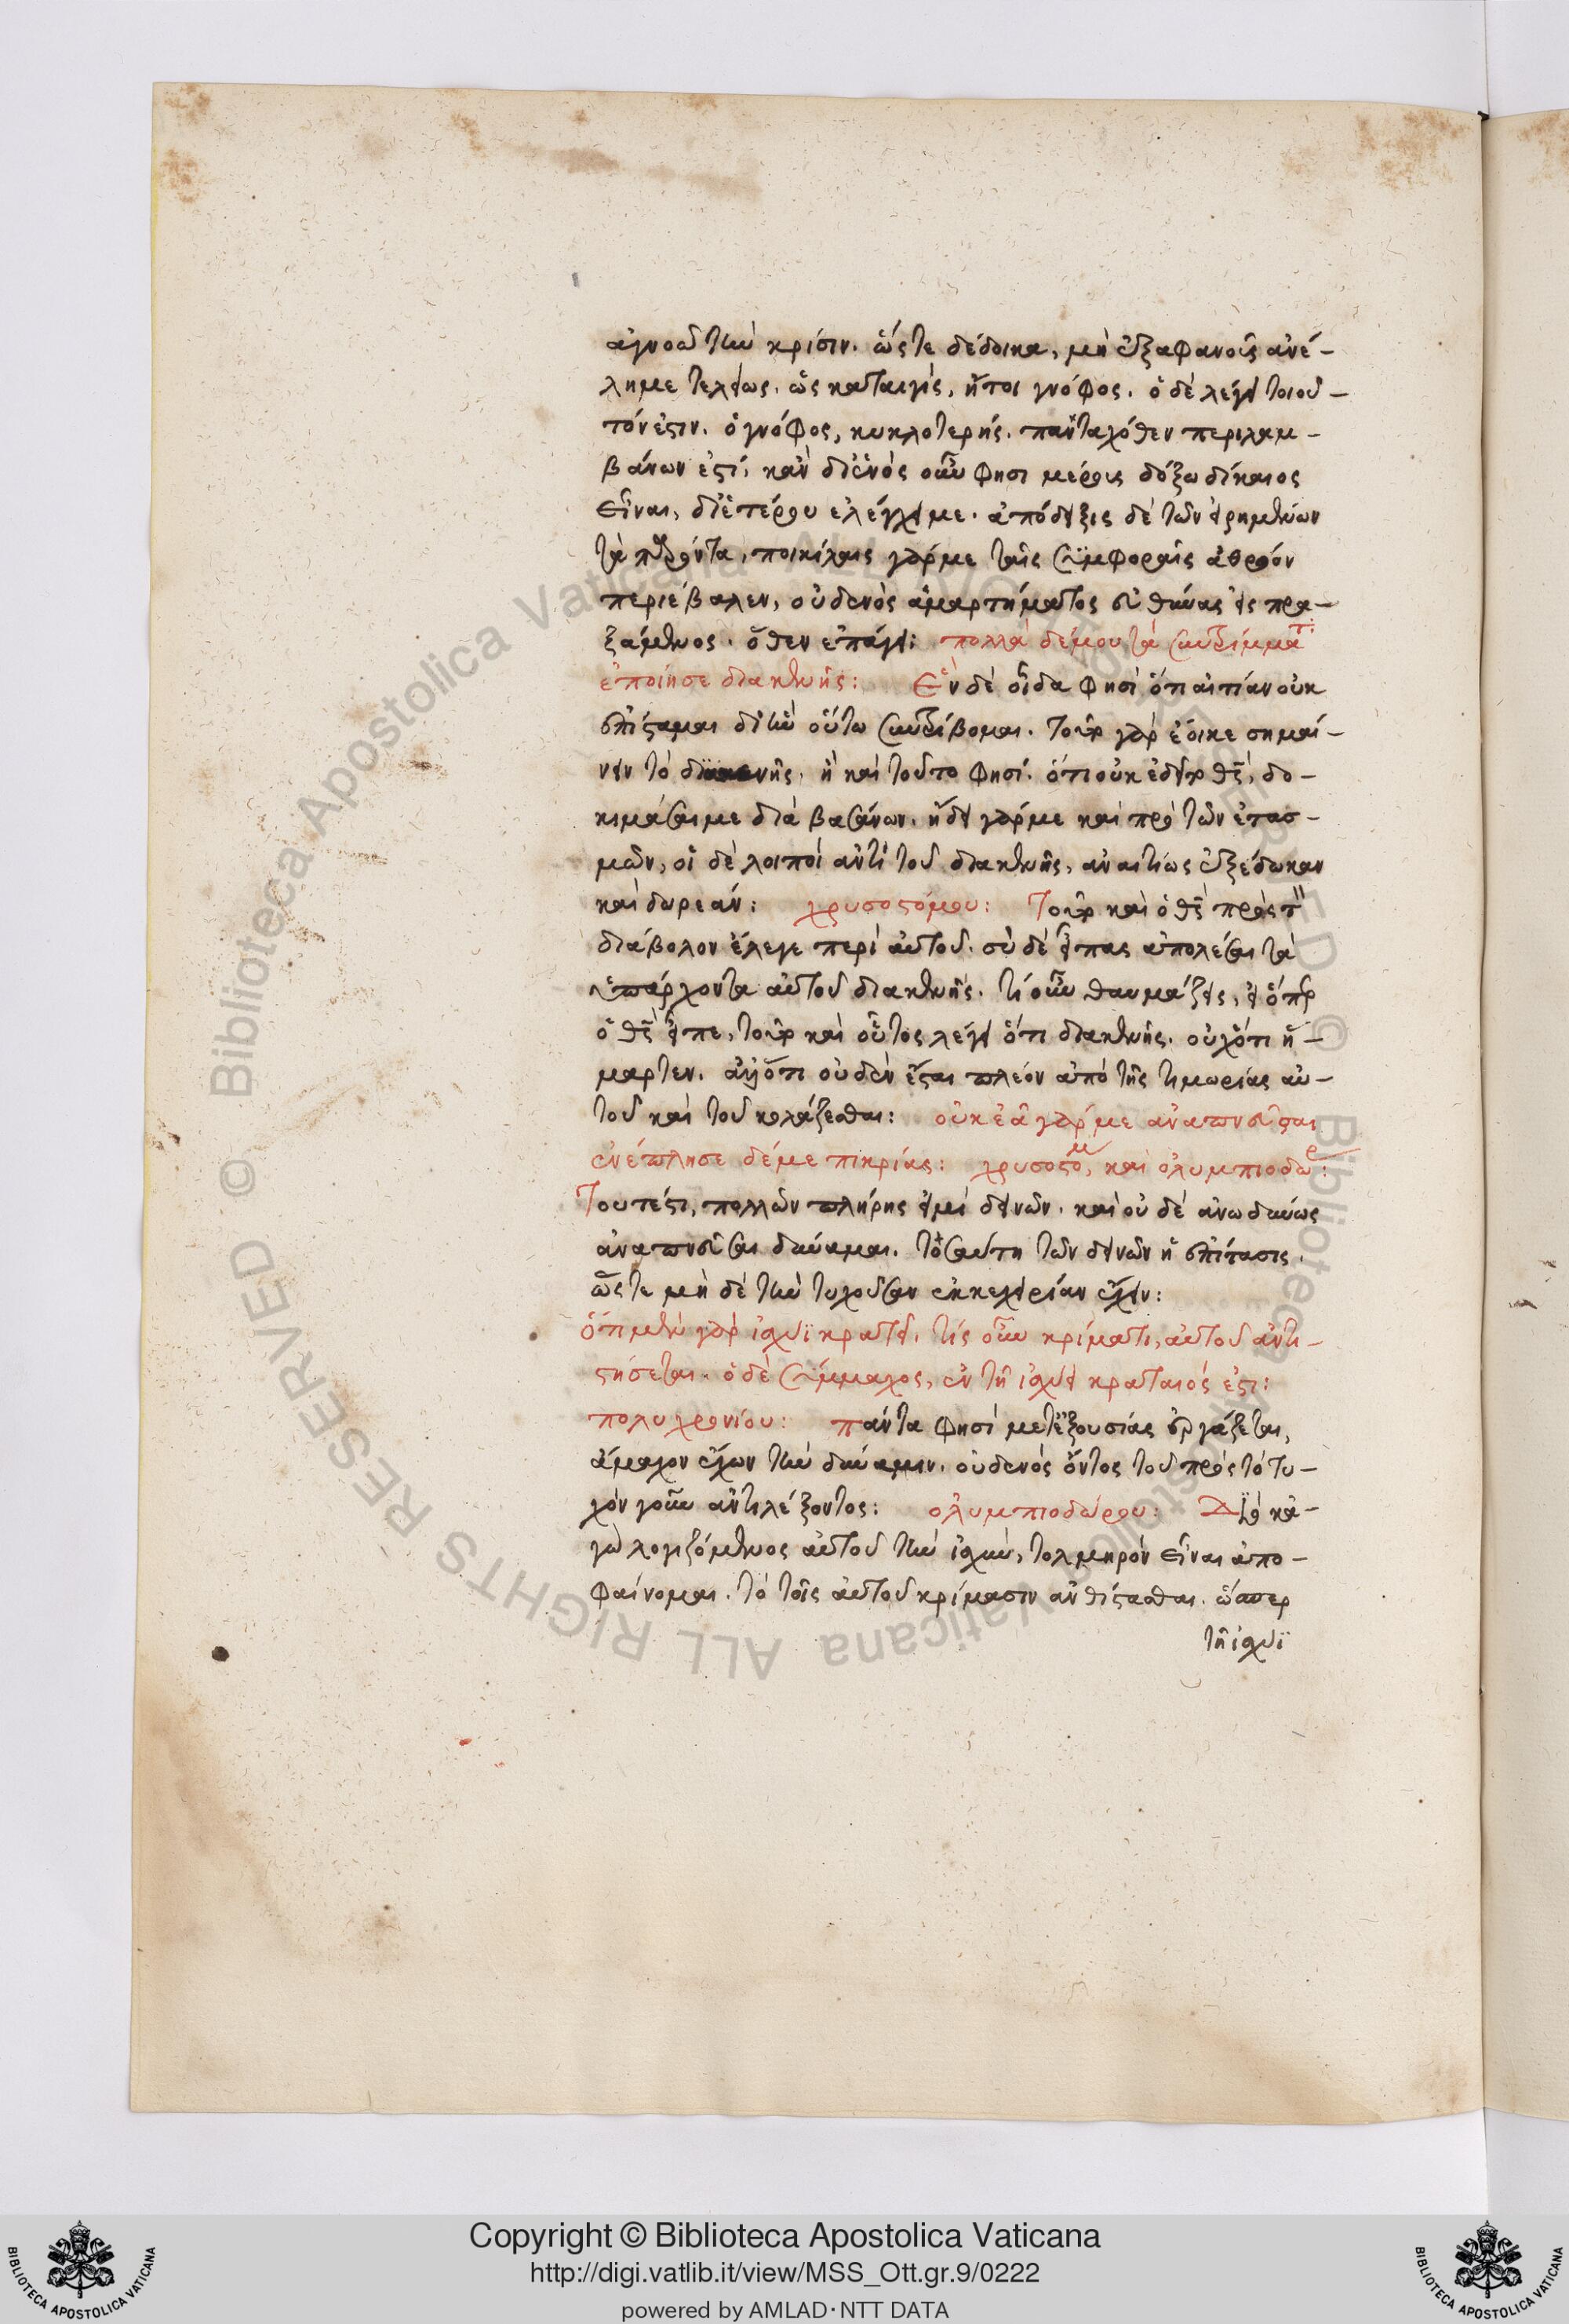 ἀγνοῶ τὴν κρίσιν. ὥστε δέδοικα, μὴ ἐξ ἀφανοῦς ἀνέ-
λη με τελείως. ὡς καταιγὶς, ἤτοι γνόφος. ὃ δὲ λέγει τοιοῦ-
τόν ἐστιν. ὁ γνόφος, κυκλοτερής. πανταχόθεν περιλαμ-
βάνων ἐστί. κἂν δι' ἑνὸς οὖν φησι μέρους δόξω δίκαιος
εἶναι, δι' ἑτέρου ἐλέγχει με. ἀπόδειξις δὲ τῶν εἰρημένων
τὰ παρόντα. ποικίλαις γάρ με ταῖς συμφοραῖς ἀθρόον
περιέβαλεν, οὐδενὸς ἁμαρτήματος εὐθύνας εἰσπρα-
ξάμενος. ὅθεν ἐπάγει: πολλὰ δέ μου τὰ συντρίμματ
ἐποίησε διακενῆς: Ἓν δὲ οἶδα φησὶ ὅτι αἰτίαν οὐκ
ἐπίσταμαι δι' ἣν οὕτω συντρίβομαι. τοῦτο γὰρ ἔοικε σημαί-
νειν τὸ διακενῆς. ἢ καὶ τοῦτο φησί. ὅτι οὐκ ἐδεῖτο θς, δο-
κιμάσαι με διὰ βασάνων. ᾔδει γάρ με καὶ πρὸ τῶν ἐτασ-
μῶν, οἱ δὲ λοιποὶ ἀντὶ τοῦ διακενῆς, ἀναιτίως ἐξέδωκαν
καὶ δωρεάν: χρυσοστόμου: Τοῦτο καὶ ὁ θς πρὸς τὸν
διάβολον ἔλεγε περὶ αὐτοῦ. σὺ δὲ εἶπας ἀπολέσαι τὰ
ὑπάρχοντα αὐτοῦ διακενῆς. τί οὖν θαυμάζεις, εἰ ὅπερ
ὁ θς εἶπε, τοῦτο καὶ οὗτος λέγει ὅτι διακενῆς. οὐχ ὅτι ἥ-
μαρτεν. ἀλλ' ὅτι οὐδὲν ἔσται πλέον ἀπὸ τῆς τιμωρίας αὐ-
τοῦ καὶ τοῦ κολάζεσθαι: οὐκ ἐᾷ γάρ με ἀναπνεῦσαι
ἐνέπλησε δέ με πικρίας: χρυσοστομ, καὶ ὀλυμπιοδωρ:
Τουτέστι, πολλῶν πλήρης εἰμὶ δεινῶν. καὶ οὐδὲ ἀνωδύνως
ἀναπνεῦσαι δύναμαι. τοσαύτη τῶν δεινῶν ἡ ἐπίτασις.
ὥστε μηδὲ τὴν τυχοῦσαν ἐκκεχειρίαν ἔχειν:
ὅτι μὲν γὰρ ἰσχύϊ κρατεῖ. τίς οὖν κρίματι, αὐτοῦ ἀντι-
στήσεται. ὁ δὲ σύμμαχος, ἐν τῇ ἰσχύει κραταιός ἐστι:
πολυχρονίου: πάντα φησὶ μετ' ἐξουσίας ἐργάζεται,
ἄμαχον ἔχων τὴν δύναμιν. οὐδενὸς ὄντος τοῦ πρὸς τὸ τυ-
χὸν γοῦν ἀντιλέξοντος: ὀλυμπιοδώρου: Διὸ κἀ-
γὼ λογιζόμενος αὐτοῦ τὴν ἰσχύν, τολμηρὸν εἶναι ἀπο-
φαίνομαι. τὸ τοῖς αὐτοῦ κρίμασιν ἀνθίστασθαι. ὥσπερ
τῇ ἰσχύϊ
Copyright © Biblioteca Apostolica Vaticana
http://digi.vatlib.it/view/MSS_Ott.gr.9/0222
powered by AMLAD·NTT DATA
BIBLIOTECA APOSTOLICA VATICANA
BIBLIOTECA APOSTOLICA VATICANA